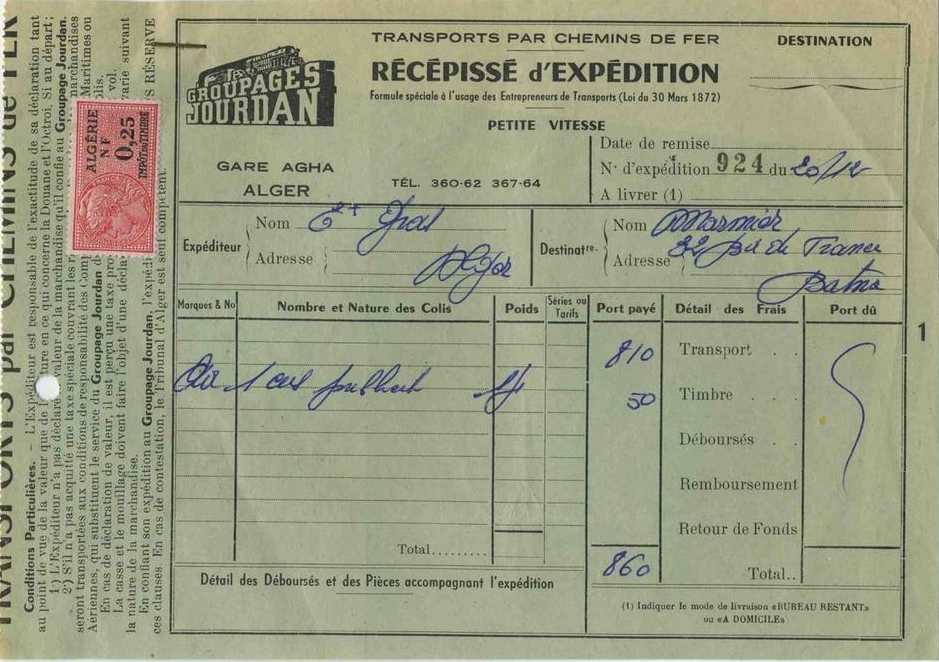 TRANSPORTS PAR CHEMINS DE FER
DESTINATION
GROUPAGES
JOURDAN
RÉCÉPISSÉ d'EXPÉDITION
Formule spéciale à l'usage des Entrepreneurs de Transports (Loi du 30 Mars 1872)
PETITE VITESSE
GARE AGHA
ALGER
TÉL. 360-62 367-64
Date de remise
N° d'expédition 924 du 20/12
A livrer (1)
Expéditeur
Nom
Adresse Alger
Destinatre.
Nom
Adresse 32 Bd de France
Batna
Marques & No
Nombre et Nature des Colis
Poids
Séries ou Tarifs
Port payé
Détail des Frais
Port dû
1 colis
810 Transport . .
50 Timbre . . .
Déboursés . .
Remboursement
Retour de Fonds
Total.........
860 Total..
Détail des Déboursés et des Pièces accompagnent l'expédition
(1) Indiquer le mode de livraison «BUREAU RESTANT»
ou «A DOMICILE»
1
ALGÉRIE
NF
0,25
IMPÔT DU TIMBRE
TRANSPORTS par CHEMINS de FER
Conditions Particulières. — L'Expéditeur est responsable de l'exactitude de sa déclaration tant
au point de vue de la valeur que de la nature en ce qui concerne la Douane et l'Octroi. Si au départ :
1°) L'Expéditeur n'a pas déclaré la valeur de la marchandise qu'il confie au Groupage Jourdan.
2°) S'il n'a pas acquitté une taxe spéciale couvrant les marchandises
seront transportées aux conditions de responsabilité des Maritimes ou
Aériennes, qui substituent le service du Groupage Jourdan
En cas de déclaration de valeur, il est perçu une taxe vol.
La casse et le mouillage doivent faire l'objet d'une suivant
la nature de la marchandise.
En confiant son expédition au Groupage Jourdan, l'expéditeur RÉSERVE
ces clauses. En cas de contestation, le Tribunal d'Alger est seul compétent.